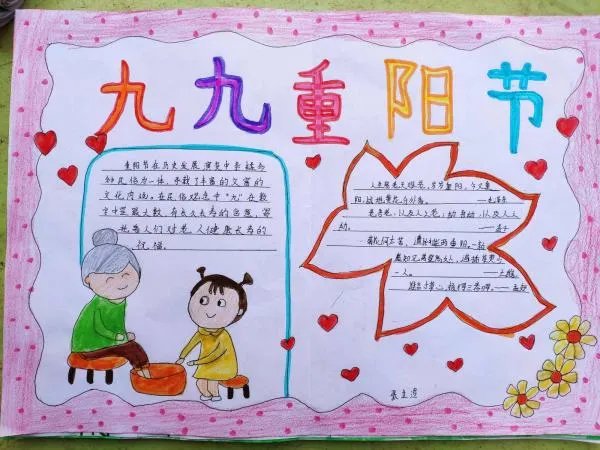 九九重阳节
重阳节在历史发展演变中杂糅多
种民俗为一体，承载了丰富的文富的
文化内涵。在民俗观念中“九”在数
字中是最大数，有长久长寿的含意，寄
托着人们对老人健康长寿的
祝福。
人生易老天难老，岁岁重阳，今又重
阳，战地黄花分外香。——毛泽东
老吾老，以及人之老；幼吾幼，以及人人
幼。——孟子
遍插茱萸少
一人。——王维
谁言寸草心，报得三春晖。——孟郊